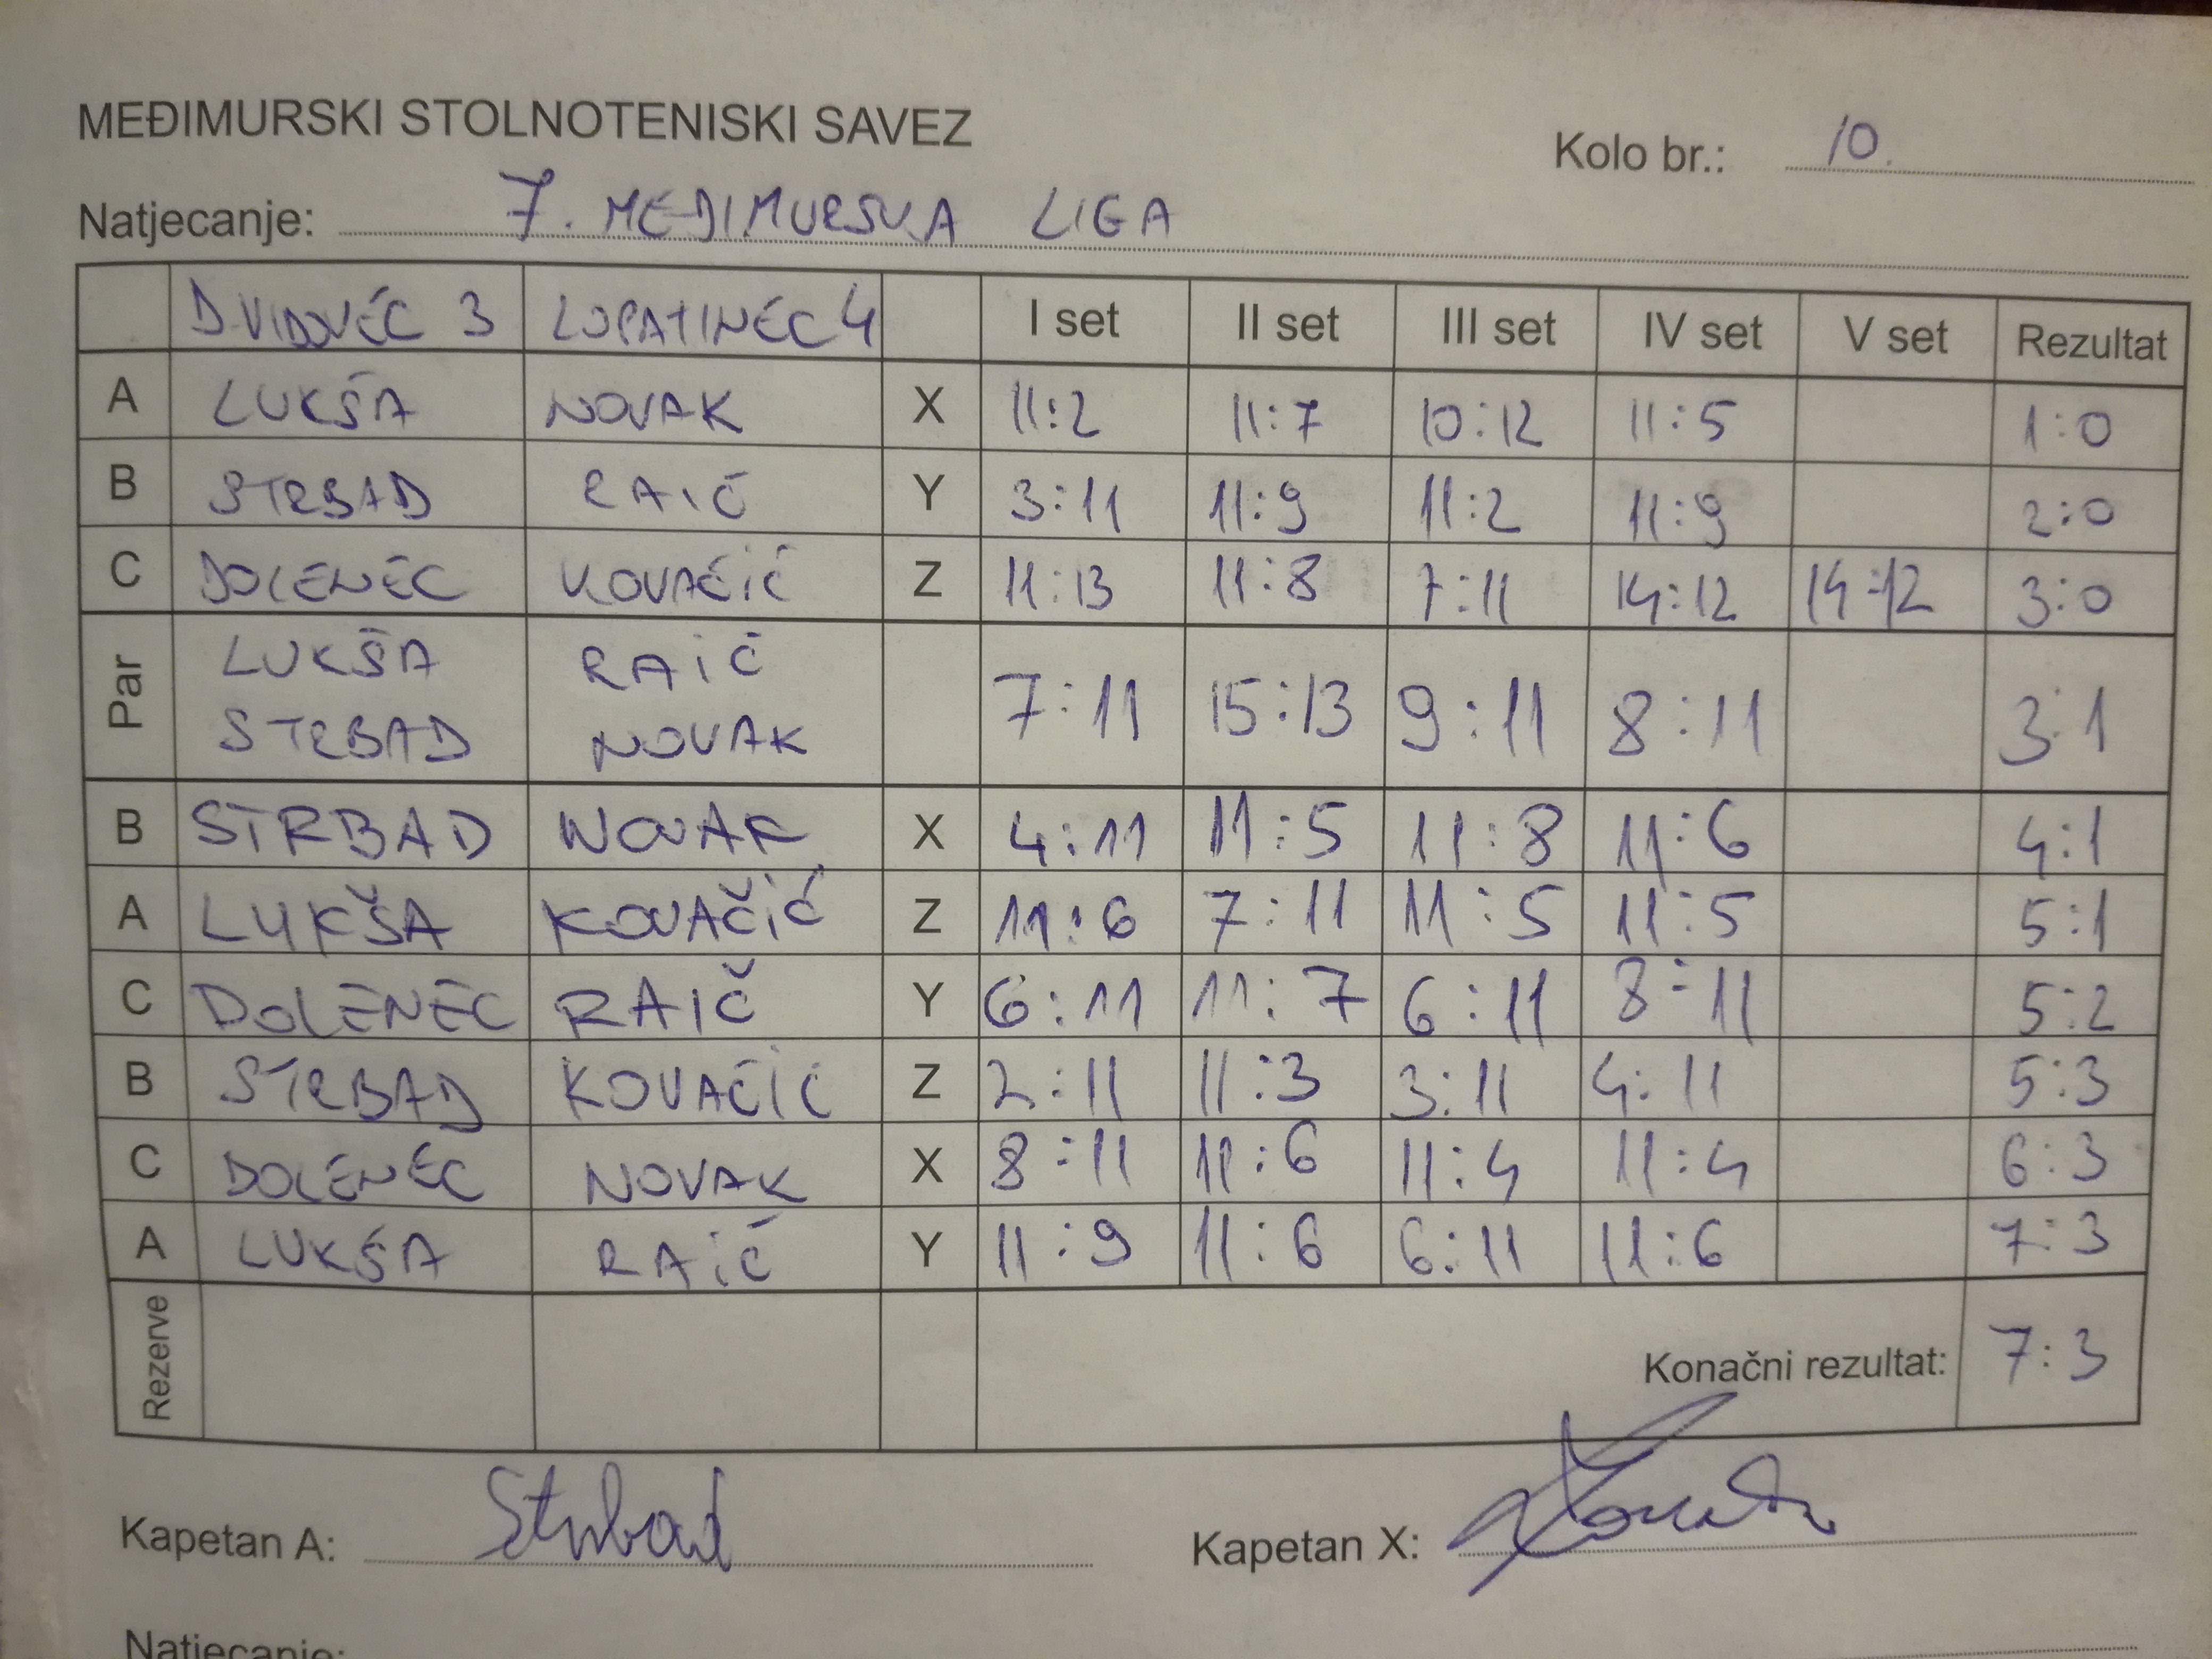 MEĐIMURSKI STOLNOTENISKI SAVEZ
Kolo br.: 10.
Natjecanje: 7. MEĐIMURSKA LIGA
D.VIDOVEC 3 LOPATINEC 4 I set II set III set IV set V set Rezultat
A LUKŠA NOVAK X 11:2 11:7 10:12 11:5 1:0
B STRBAD RAIČ Y 3:11 11:9 11:2 11:9 2:0
C DOLENEC KOVAČIĆ Z 11:13 11:8 7:11 14:12 14:12 3:0
Par LUKŠA RAIČ 7:11 15:13 9:11 8:11 3:1
STRBAD NOVAK
B STRBAD NOVAK X 4:11 11:5 11:8 11:6 4:1
A LUKŠA KOVAČIĆ Z 11:6 7:11 11:5 11:5 5:1
C DOLENEC RAIČ Y 6:11 11:7 6:11 8:11 5:2
B STRBAD KOVAČIĆ Z 2:11 11:3 3:11 4:11 5:3
C DOLENEC NOVAK X 8:11 11:6 11:4 11:4 6:3
A LUKŠA RAIČ Y 11:9 11:6 6:11 11:6 7:3
Rezerve Konačni rezultat: 7:3
Kapetan A: Strbad Kapetan X:
Natjecanje: